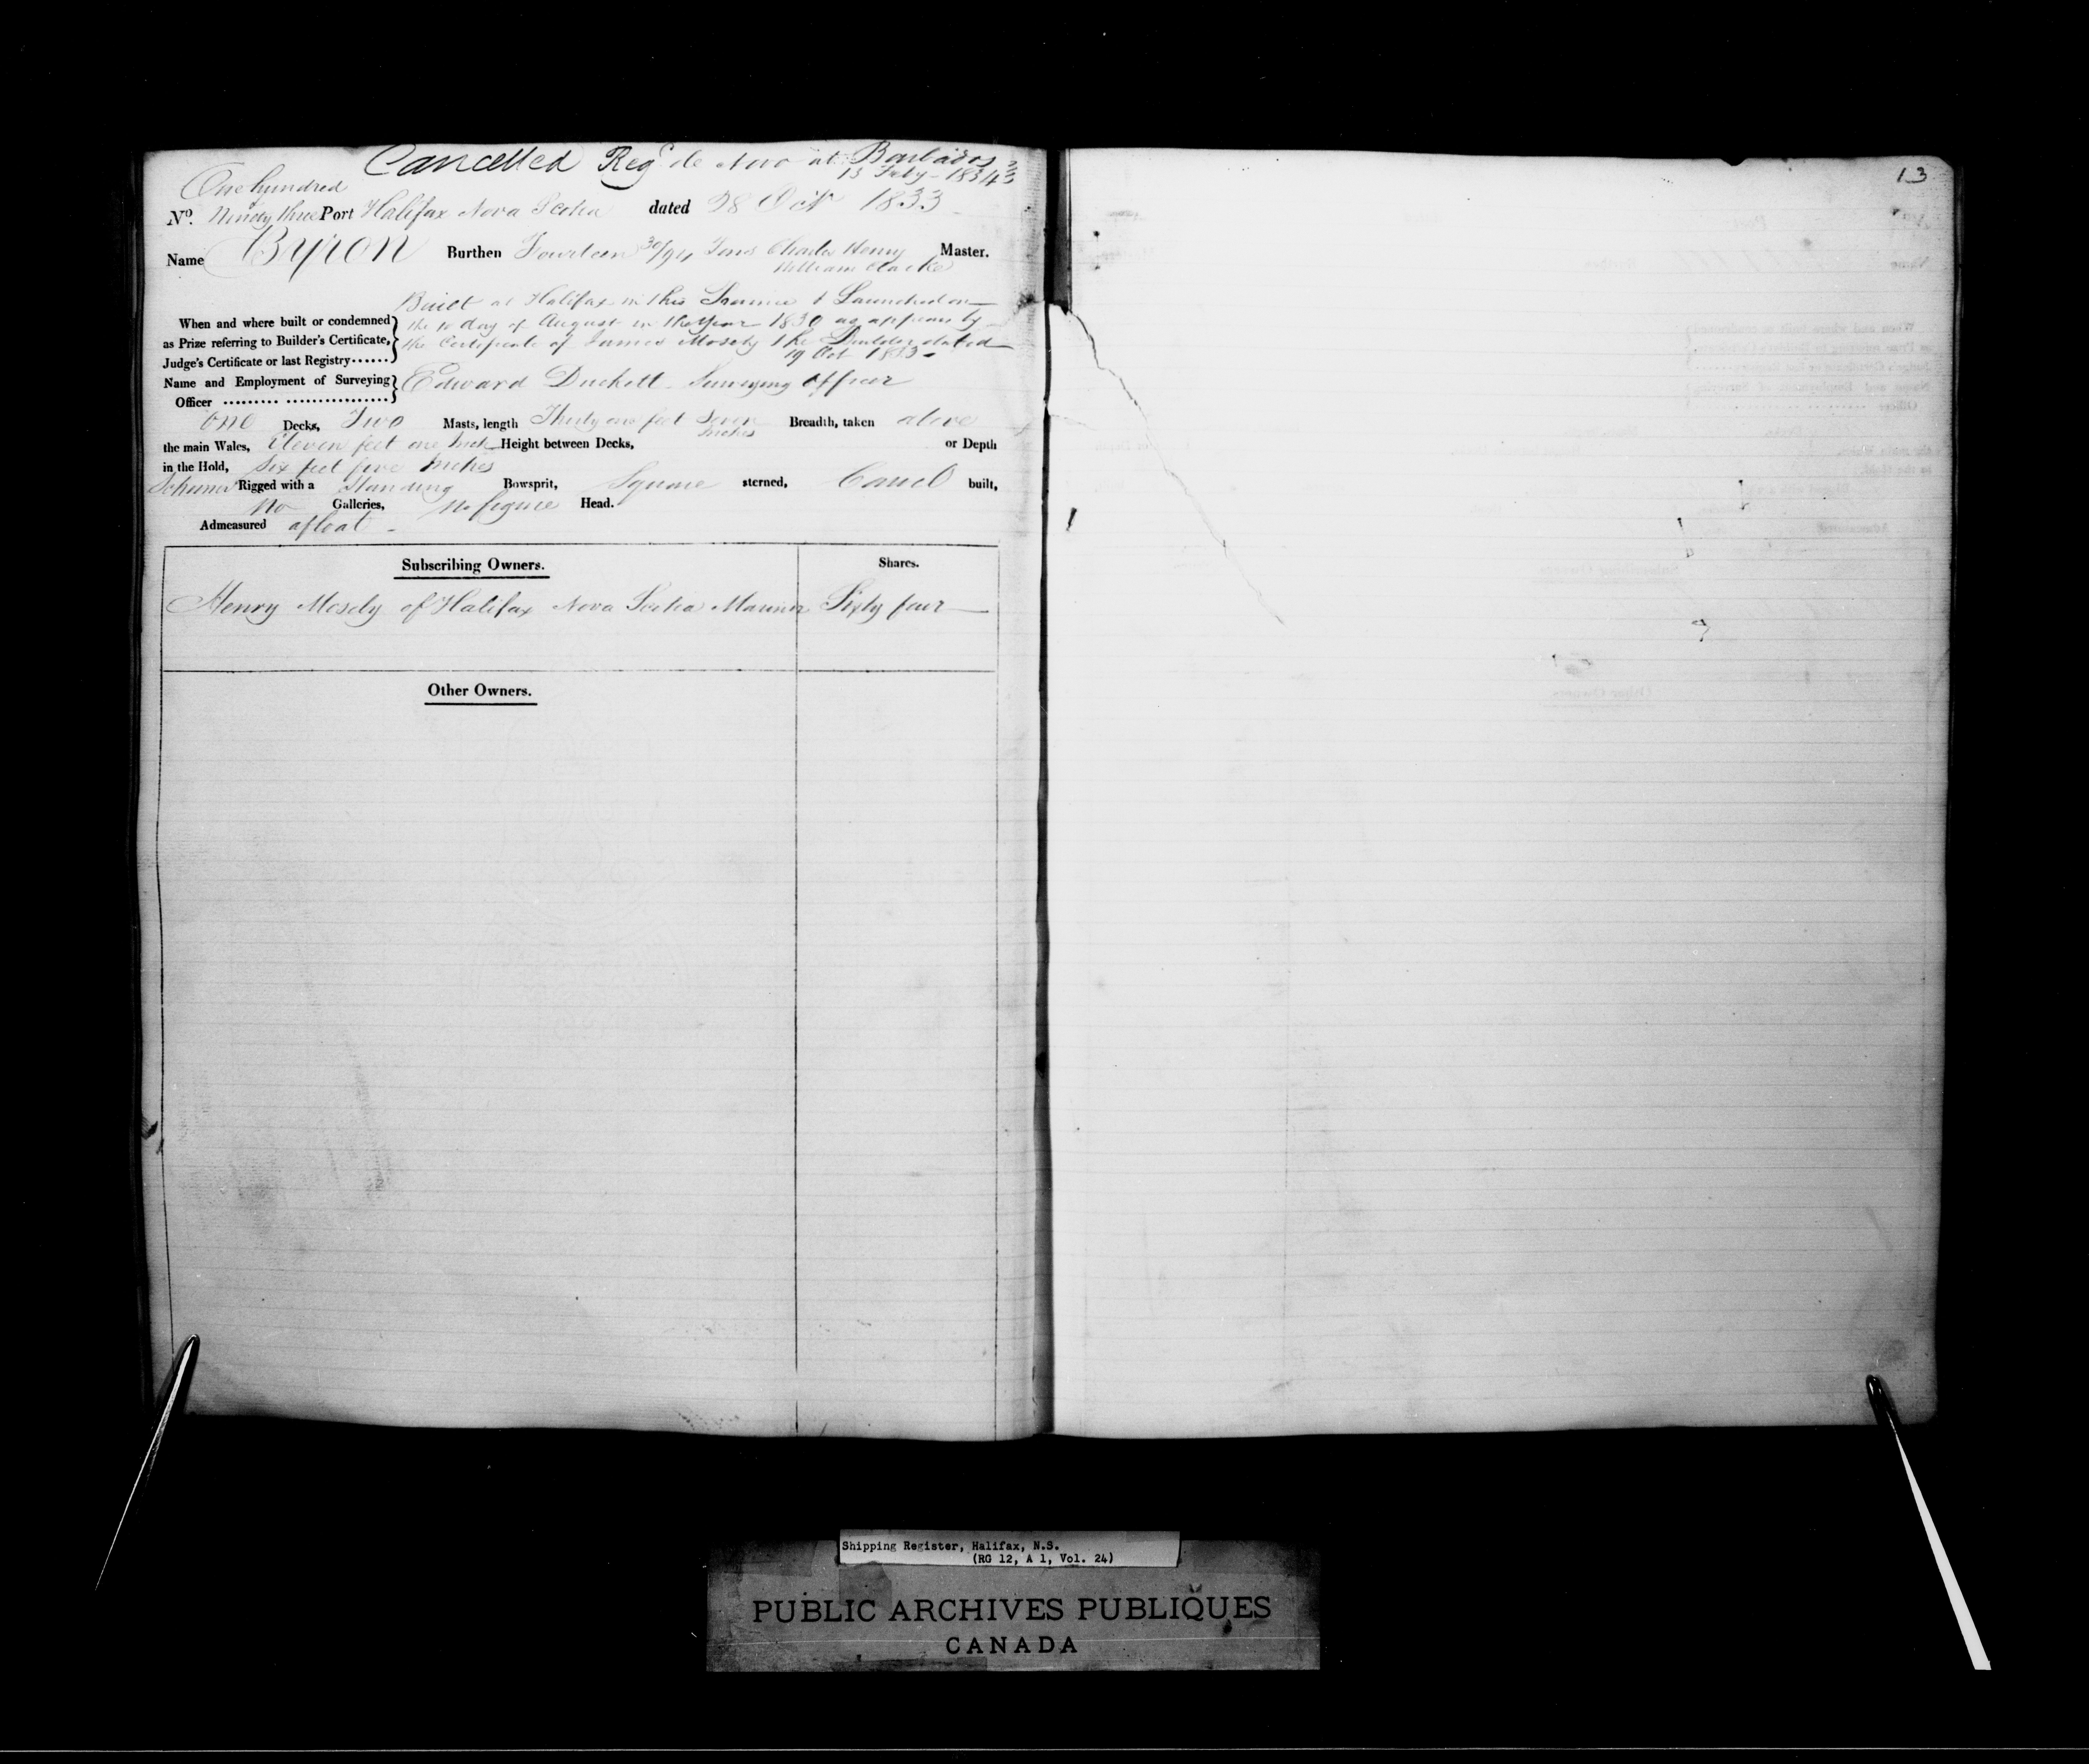 Cancelled Reg.d de Novo at Barbados
13 Feby - 1834
One hundred
&
No. Ninety three Port Halifax Nova Scotia dated 28 Oct 1833
Name Byron Burthen Fourteen 30/94 Tons Charles Henry Master.
William Clarke
Built at Halifax in this Province & Launched on
the 10 day of August in the Year 1830 as appears by
the Certificate of James Mosely the Builder dated
19 Oct 1833
When and where built or condemned
as Prize referring to Builder's Certificate,
Judge's Certificate or last Registry......
Name and Employment of Surveying
Officer
Edward Duckett Surveying Officer
One Decks, Two Masts, length Thirty one feet Seven Inches Breadth, taken above
the main Wales, Eleven feet one Inch Height between Decks, or Depth
in the Hold, Six feet five Inches
Schooner Rigged with a Standing Bowsprit, Square sterned, Carvel built,
No Galleries, no figure Head.
Admeasured afloat -
Subscribing Owners. Shares.
Henry Mosely of Halifax Nova Scotia Mariner Sixty four
Other Owners.
13
Shipping Register, Halifax, N.S.
(RG 12, A 1, Vol. 24)
PUBLIC ARCHIVES PUBLIQUES
CANADA